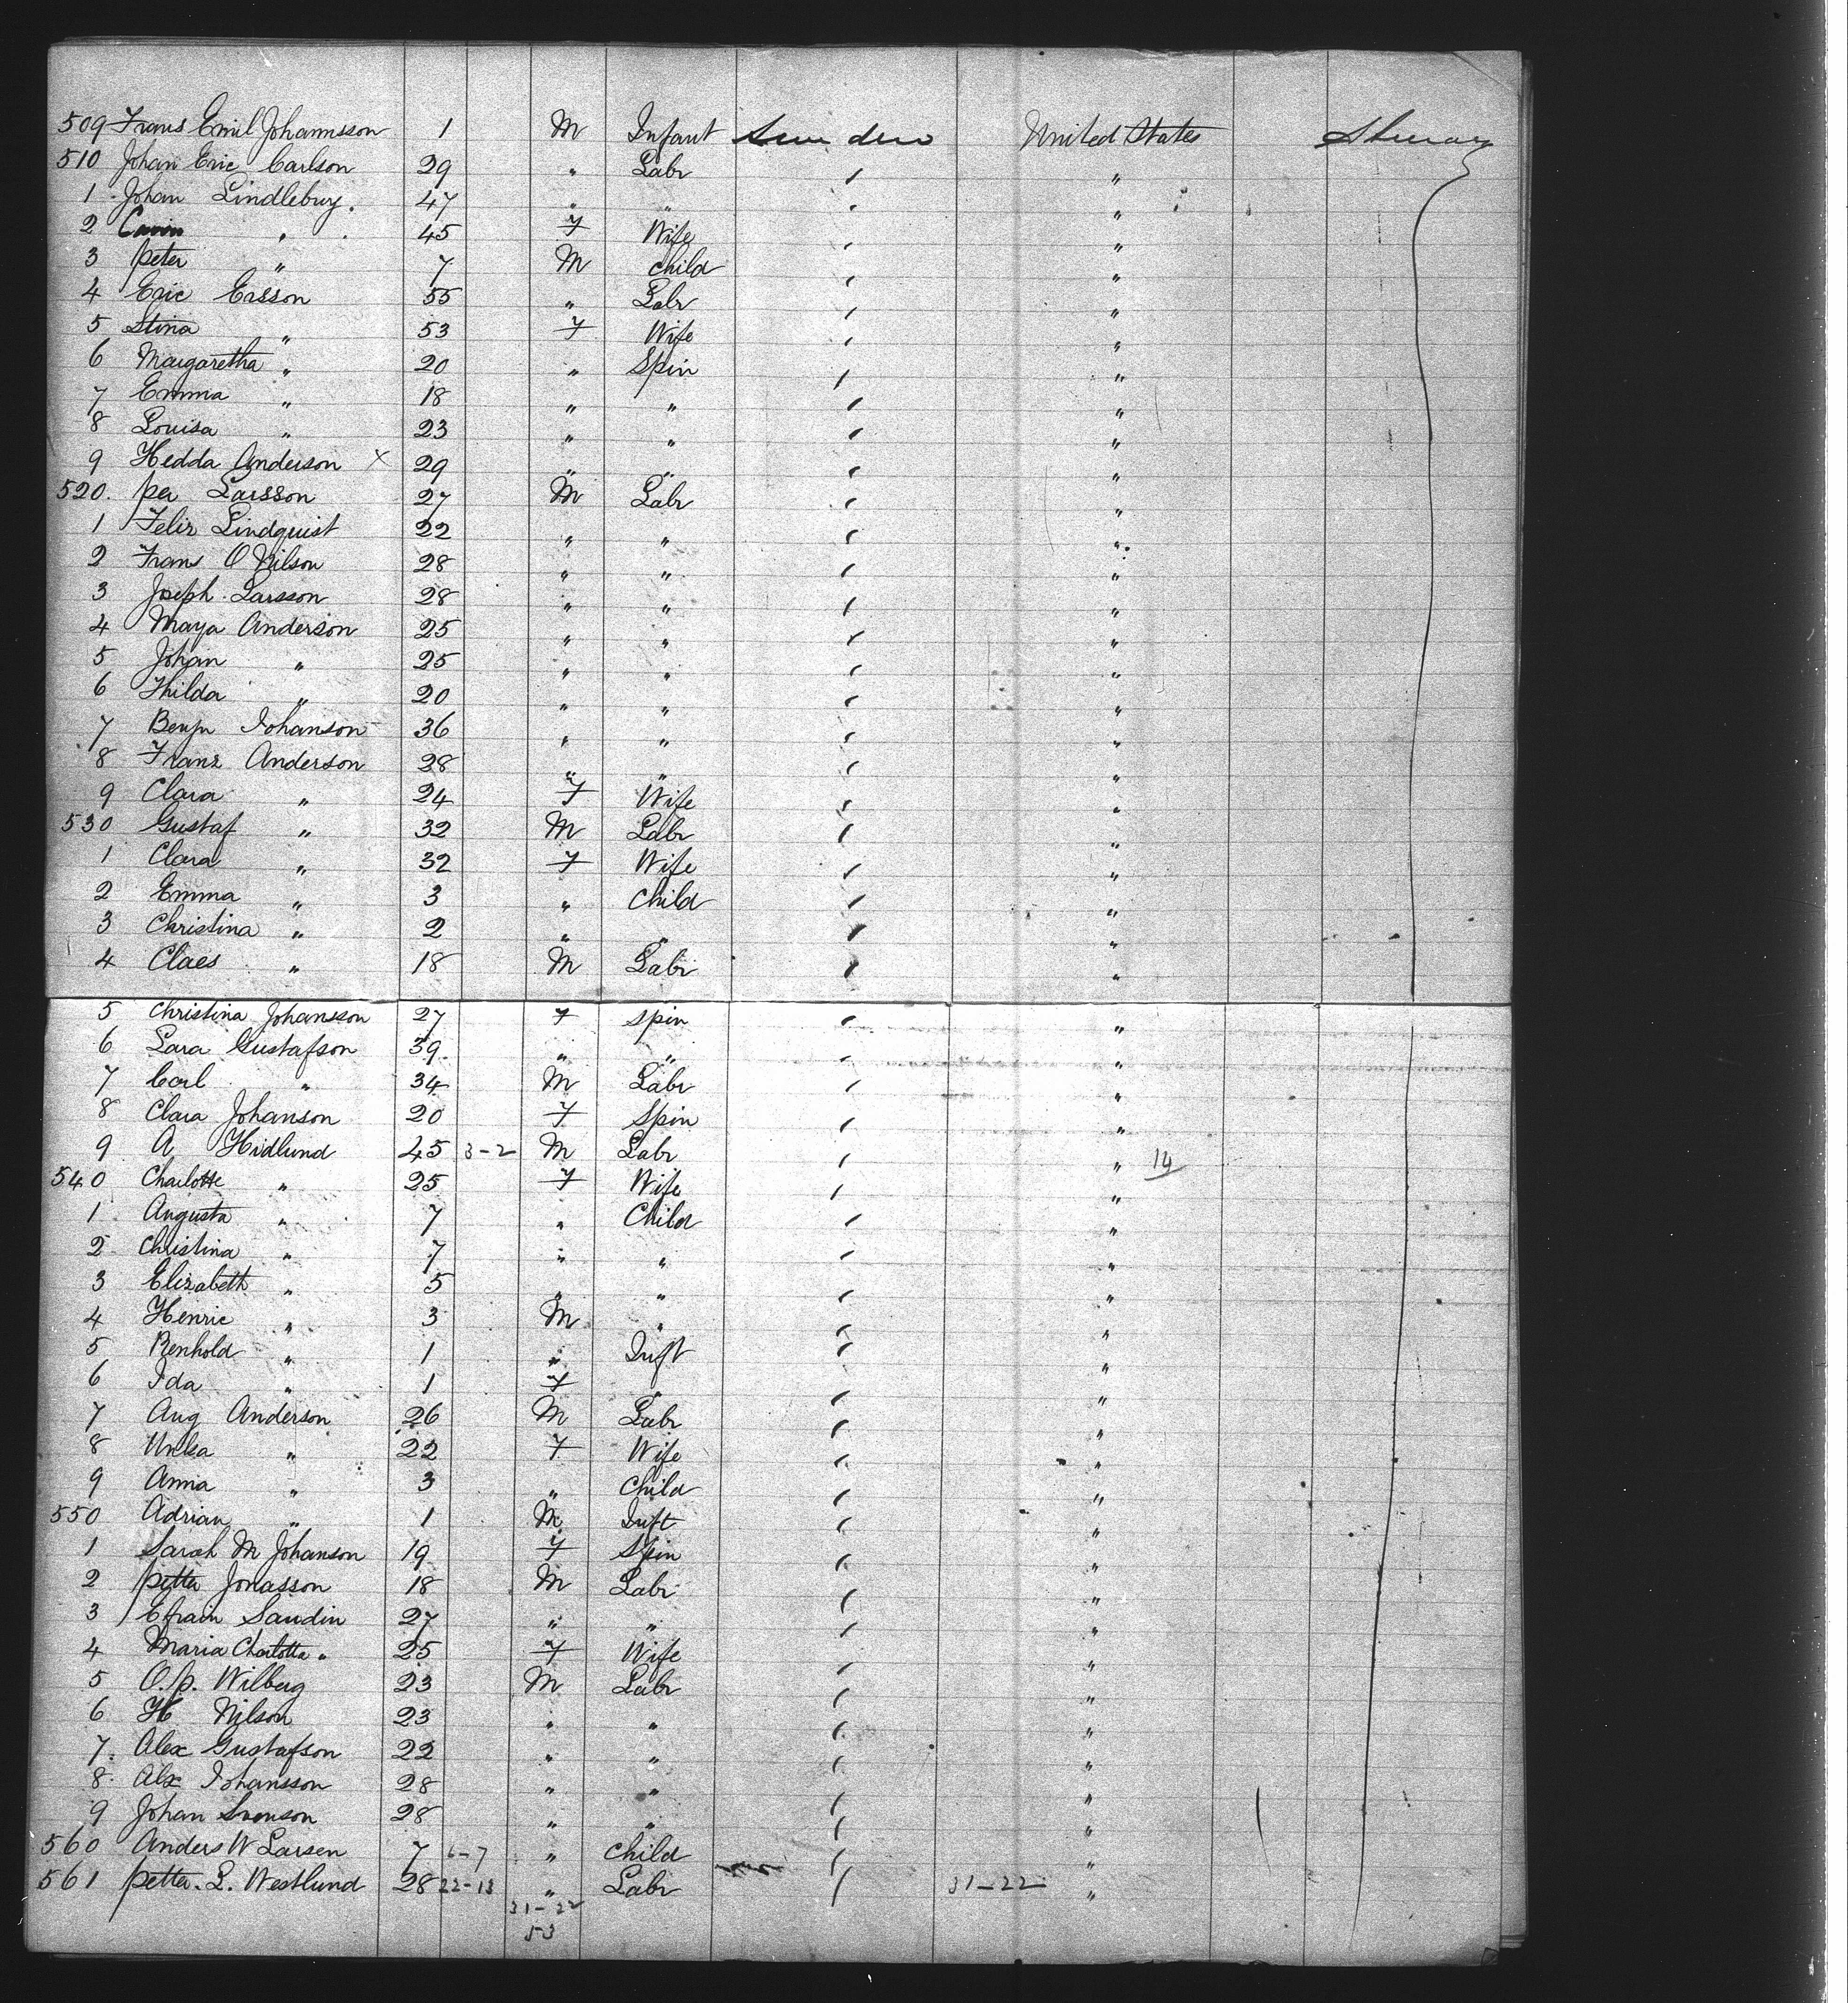 509 Frans Emil Johannsson 1 M Infant Sweden United States Steerag
510 Johan Eric Carlson 29 " Labr " "
1 Johan Lindlebury. 47 " " " "
2 " 45 F Wife " "
3 peter " 7 M child " "
4 Eric Ersson 55 " Labr " "
5 Stina " 53 F Wife " "
6 Margaretha " 20 " Spin " "
7 Emma " 18 " " " "
8 Louisa " 23 " " " "
9 Hedda Anderson x 29 " " " "
520. per Larsson 27 M Labr " "
1 Felix Lindquist 22 " " " "
2 Frans O Nilson 28 " " " "
3 Joseph Larsson 28 " " " "
4 Maya Anderson 25 " " " "
5 Johan " 25 " " " "
6 Hilda " 20 " " " "
7 Benjn Johanson 36 " " " "
8 Franz Anderson 28 " " " "
9 Clara " 24 F Wife " "
530 Gustaf " 32 M Labr " "
1 Clara " 32 F Wife " "
2 Emma " 3 " Child " "
3 Christina " 2 " " " "
4 Claes " 18 M Labr " "
5 Christina Johansson 27 F Spin " "
6 Lara Gustafson 39. " " " "
7 Carl " 34 M Labr " "
8 Clara Johanson 20 F Spin " "
9 A Hidlund 45 3-2 M Labr " " 14
540 Charlotte " 25 F Wife " "
1 Augusta " 7 " Child " "
2 Christina " 7 " " " "
3 Elizabeth " 5 " " " "
4 Henric " 3 M " " "
5 Renhold " 1 " Inft " "
6 Ida " 1 F " " "
7 Aug Anderson 26 M Labr " "
8 " 22 F Wife " "
9 Anna " 3 " Child " "
550 Adrian " 1 M Inft " "
1 Sarah M Johanson 19 F Spin " "
2 petter Jonasson 18 M Labr " "
3 Efraim Sandin 27 " " " "
4 Maria Charlotta " 25 F Wife " "
5 O.p. Wilberg 23 M Labr " "
6 H Nilson 23 " " " "
7. Alex Gustafson 22 " " " "
8. Alx Johansson 28 " " " "
9 Johan Svenson 28 " " " "
560 Anders W Larsen 7 6-7 " Child " "
561 petter. L. Westlund 28 22-13 " Labr " 31-22 "
31-22
53